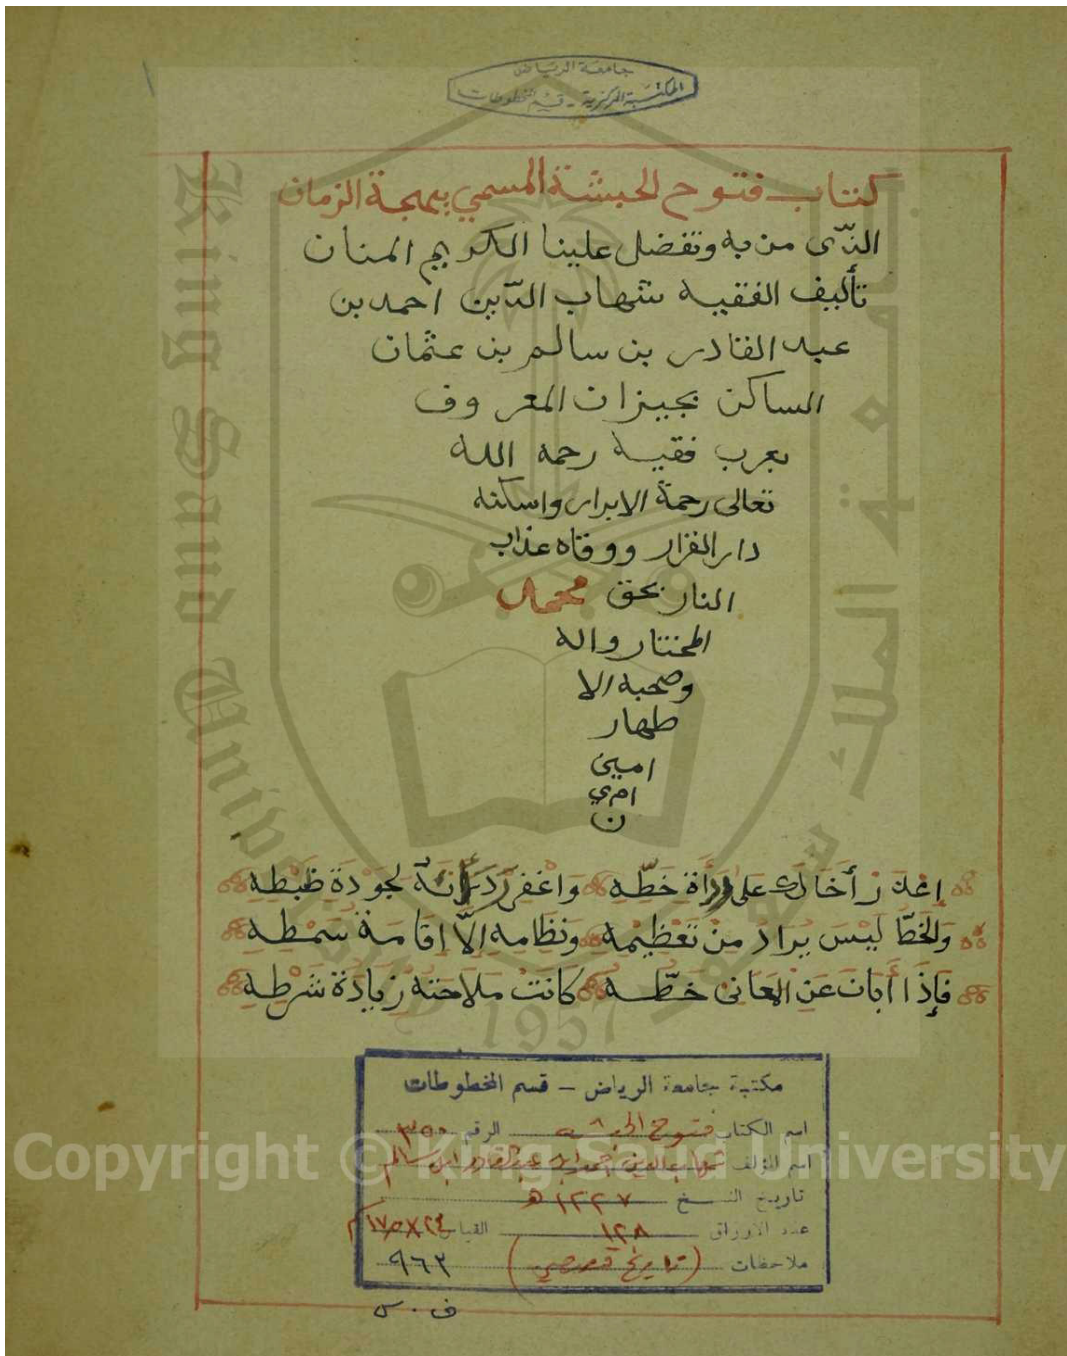 جامعة الرياض
المكتبة المركزية - قسم المخطوطات
كتاب فتوح الحبشة المسمي ببهجة الزمان
الذّى من به وتفضل علينا الكريم المنان
تأليف الفقيه شهاب الدّين احمد بن
عبد القادر بن سالم بن عثمان
الساكن بجيزان المعروف
بعرب فقيه رحمه الله
تعالى رحمة الابرار واسكنه
دار القرار ووقاه عذاب
النار بحق محمد
المختار واله
وصحبه الا
طهار
امين
امي
ن
إعذر أخاك على رداءة خطّه واغفر رداءته لجودة ضبطه
والخطّ ليس يراد من تعظيمه ونظامه إلّا إقامة سمطه
فإذا أبان عن المعانى خطّه كانت ملاحته زيادة شرطه
مكتبة جامعة الرياض - قسم المخطوطات
اسم الكتاب فتوح الحبشه الرقم ٣٥٠
اسم المؤلف شهاب الدين احمد ابن عبد القادر ابن سالم
تاريخ النسخ ١٢٢٧ هـ
عدد الأوراق ١٢٨ القياس ٢٤×١٧٫٥ م
ملاحظات (تاريخ قصصي) ٩٦٢
ف . س
King Saud University
جامعة الملك سعود
1957
Copyright © King Saud University